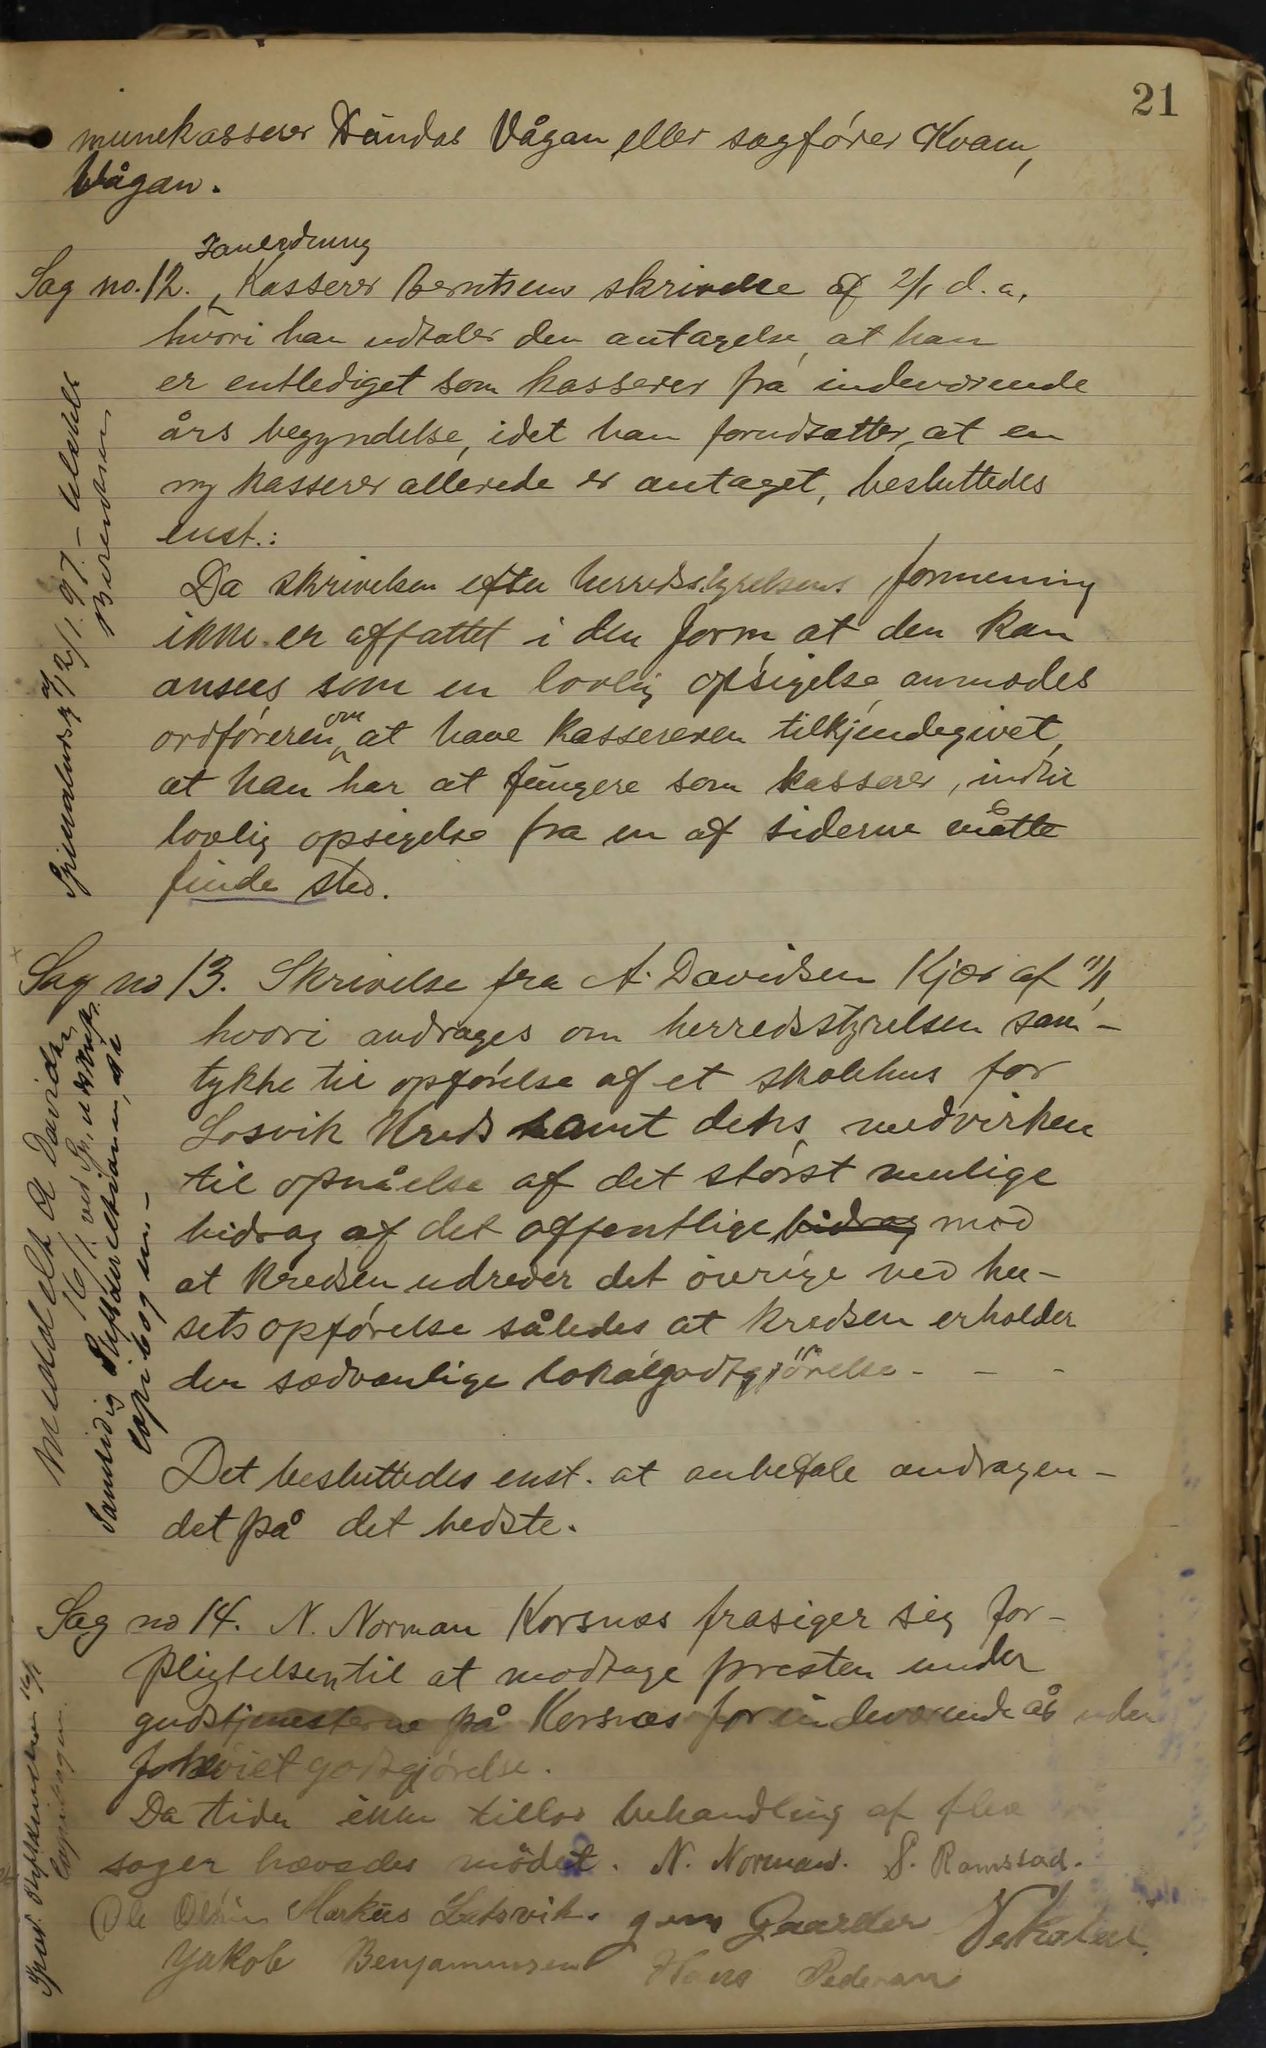 21
munekasserer Vågan eller sagfører Kvam,
Vågan.
I anledning
Sag no. 12. Kasserer Berntsens skrivelse af 2/1 d. a.
hvori han udtaler den antagelse, at han
er entlediget som kasserer fra indeværende
års begyndelse, idet han forudsætter, at en
ny kasserer allerede er antaget, besluttedes
enst.:
Da skrivelsen efter herredsstyrelsens formening
ikke er affattet i den form at den kan
ansees som en lovlig opsigelse anmodes
ordføreren om at have kassereren tilkjendegivet,
at han har at fungere som kasserer, indtil
lovlig opsigelse fra en af siderne måtte
finde sted.
Sag no 13. Skrivelse fra A. Davidsen Kjær af 11/1,
hvori andrages om herredsstyrelsen sam-
tykke til opførelse af et skolehus for
Losvik Kreds samt dets medvirken
til opnåelse af det størst mulige
bidrag af det offentlige bidrag mod
at kredsen udreder det øvrige ved hu-
sets opførelse således at kredsen erholder
den sædvanlige lokalgodtgjørelse - - -
Det besluttedes enst. at anbefale andragen-
det på det bedste.
Sag no 14. N. Norman Korsnæs frasiger sig for-
pligtelsen til at modtage presten under
gudstjenesterne på Korsnæs for indeværende år uden
forhøiet godtgjørelse.
Da tiden ikke tillod behandling af flere
sager hævedes mødet. N. Norman. P. Ramstad.
Ole Olsen Markus Leetsvik. Jens Gaarder
Jakob Benjaminsen Hans Pedersen
12/1 97. - 
Meddelt A Davidsen
16/1 ved Pr. udskrift.
Samtidig
copibogen -
16/1
Copibogen.